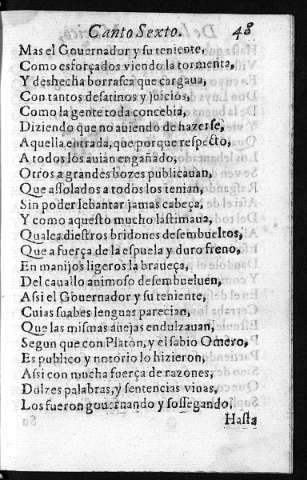 Canto Sexto. 48
Mas el Gouernador y su teniente,
Como esforçados viendo la tormenta,
Y deshecha borrasca que cargaua,
Con tantos desatinos y juicios,
Como la gente toda concebia,
Diziendo que no auiendo de hazerse,
Aquella entrada, que porque respecto,
A todos los auian engañado,
Otros a grandes bozes publicauan,
Que assolados a todos los tenian,
Sin poder lebantar jamas cabeça,
Y como aquesto mucho lastimaua,
Quales diestros bridones desembueltos,
Que a fuerça de la espuela y duro freno,
En manijos ligeros la braueça,
Del cauallo animoso desembueluen,
Assi el Gouernador y su teniente,
Cuias suabes lenguas parecian,
Que las mismas auejas endulzauan,
Segun que con Platon, y el sabio Omero,
Es publico y notorio lo hizieron,
Assi con mucha fuerça de razones,
Dulzes palabras, y sentencias viuas,
Los fueron gouernando y sossegando,
Hasta